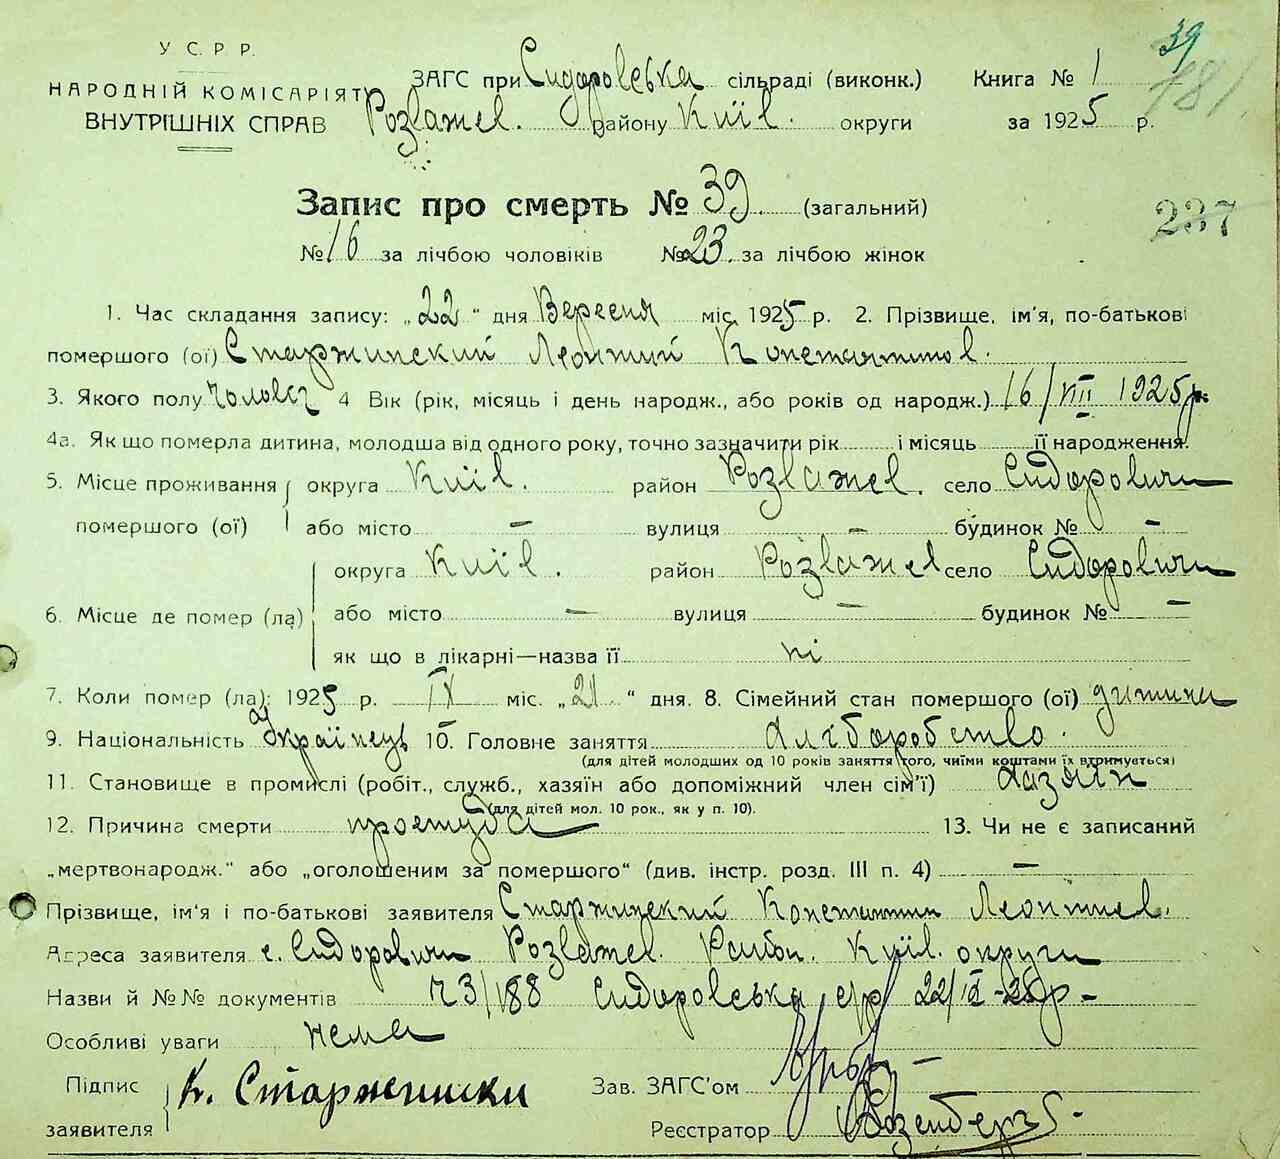 39
181
У.С.Р.Р.
НАРОДНІЙ КОМІСАРІЯТ
ВНУТРІШНІХ СПРАВ
ЗАГС при Сидоровська сільраді (виконк.) Книга № 1
Розважев. району Київ. округи за 1925 р.
Запис про смерть № 39. (загальний)
237
№ 16 за лічбою чоловіків № 23. за лічбою жінок
1. Час складання запису: „22“ дня Вересня міс. 1925 р. 2. Прізвище, ім'я, по-батькові
помершого (ої) Старжинский Леонтий Константинов.
3. Якого полу чоловіч 4 Вік (рік, місяць і день народж., або років од народж.) 16/VIII 1925р.
4а. Як що померла дитина, молодша від одного року, точно зазначити рік і місяць її народження.
5. Місце проживання округа Київ. район Розважев. село Сидоровичи
помершого (ої) або місто — вулиця — будинок № —
округа Київ. район Розважев село Сидоровичи
6. Місце де помер (ла) або місто — вулиця — будинок № —
як що в лікарні—назва її ні
7. Коли помер (ла): 1925 р. IX міс. „21“ дня. 8. Сімейний стан помершого (ої) дитина
9. Національність Українець 10. Головне заняття Хліборобство.
(для дітей молодших од 10 років заняття того, чиїми коштами їх втримується)
11. Становище в промислі (робіт., служб., хазяїн або допоміжний член сім'ї) Хазяїн
(для дітей мол. 10 рок., як у п. 10).
12. Причина смерти простуда 13. Чи не є записаний
„мертвонародж.“ або „оголошеним за помершого“ (див. інстр. розд. III п. 4) —
Прізвище, ім'я і по-батькові заявителя Старжинский Константин Леонтиев.
Адреса заявителя с. Сидоровичи Розважев. Район. Київ. округи
Назви й №№ документів ч3/188 Сидоровська с/р 22/IX-25р-
Особливі уваги нема
Підпис К. Старжински Зав. ЗАГС'ом
заявителя Реєстратор Розенберг